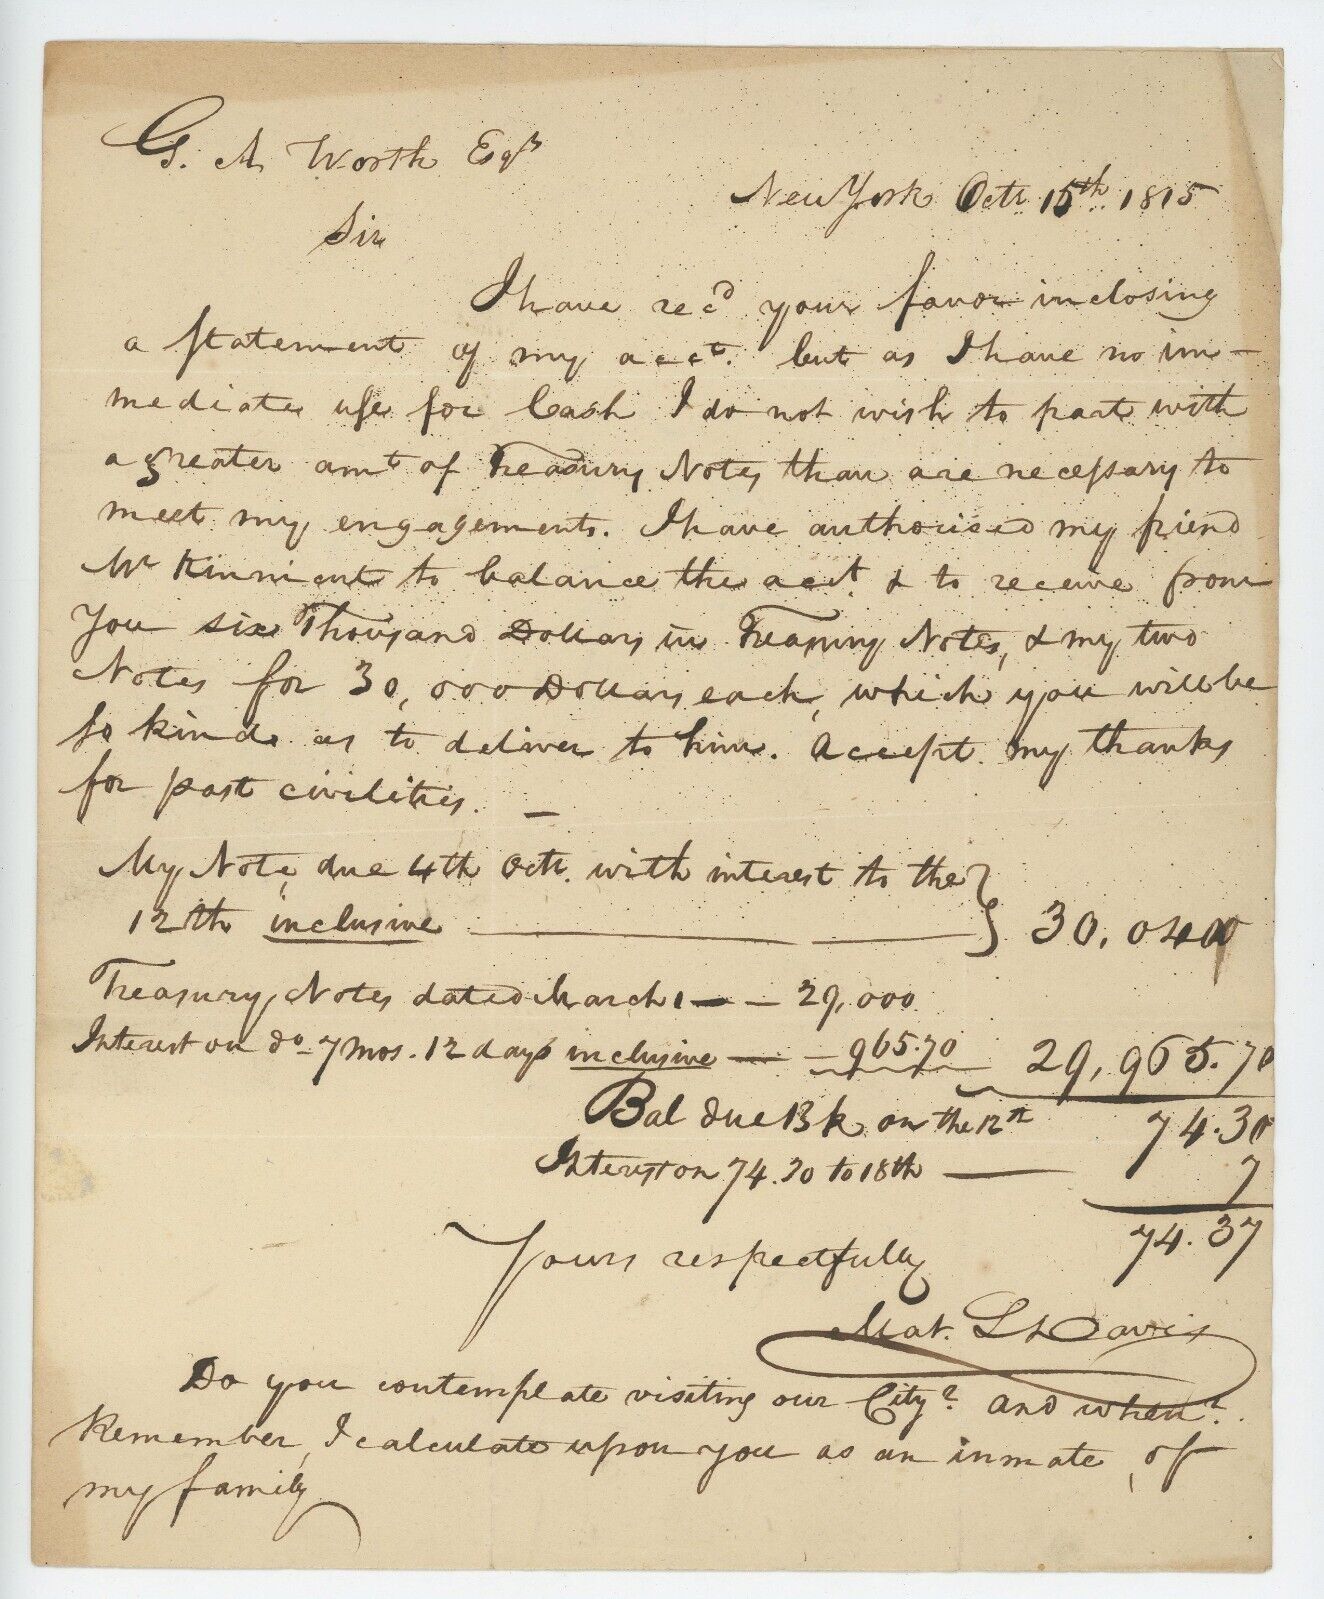 G. A Worth Esqr
New York Octr 15th 1815
Sir
I have recd your favor inclosing
a statement of my acct. but as I have no im-
mediate use for Cash I do not wish to part with
a greater amt of Treasury Notes than are necessary to
meet my engagements. I have authorised my friend
Mr Kinnicut to balance the acct. & to receive from
You six Thousand Dollars in Treasury Notes, & my two
Notes for 30,000 Dollars each, which you will be
so kind as to deliver to him. Accept my thanks
for past civilities. —
My Note, due 4th Octr. with interest to the }
12th inclusive ——— } 30,040
Treasury Notes dated March 1 — — 29,000
Interest on do - 7 mos. 12 days inclusive — — 965.70 29,965.70
Bal due Bk on the 12th 74.30
Interest on 74.30 to 18th — 7
74.37
Yours respectfully
Mat. L Davis
Do you contemplate visiting our City? and when?
Remember, I calculate upon you as an inmate, of
my family